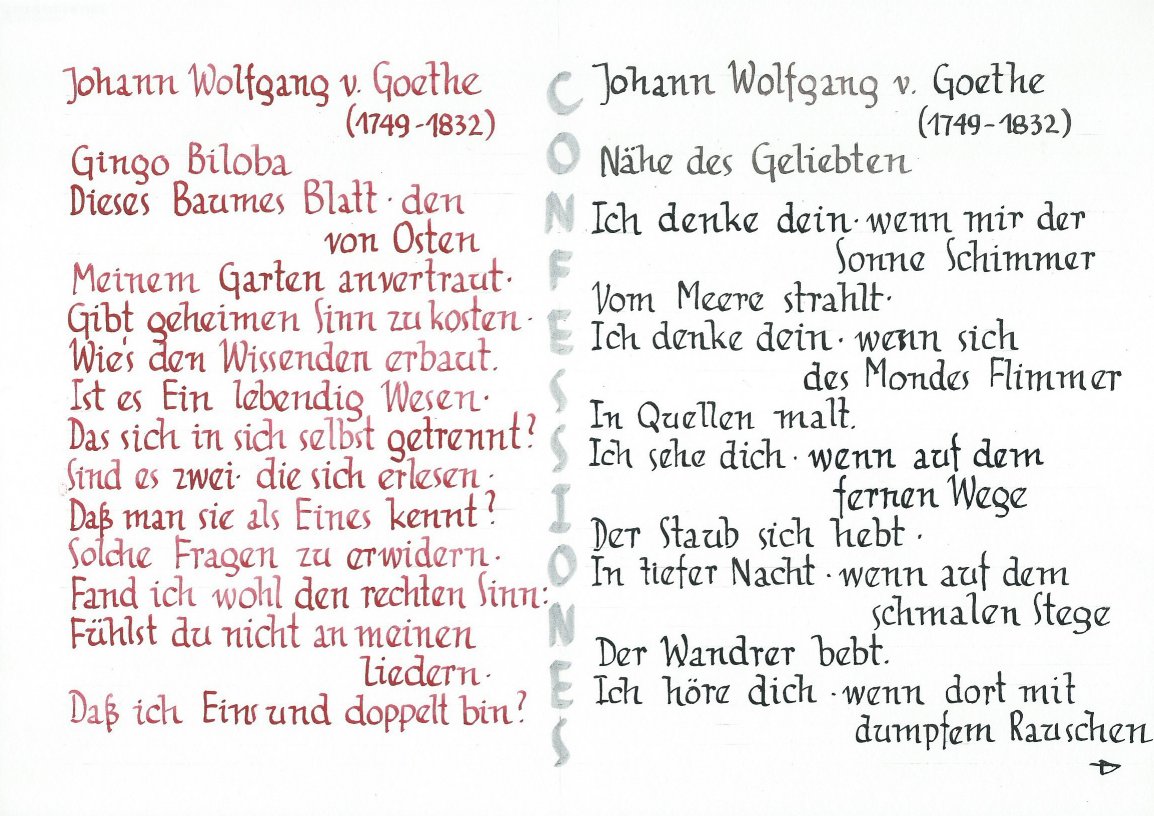 Johann Wolfgang v. Goethe
(1749-1832)
Gingo Biloba
Dieses Baumes Blatt · den
von Osten
Meinem Garten anvertraut ·
Gibt geheimen Sinn zu kosten ·
Wie's den Wissenden erbaut.
Ist es Ein lebendig Wesen ·
Das sich in sich selbst getrennt?
Sind es zwei · die sich erlesen ·
Daß man sie als Eines kennt?
Solche Fragen zu erwidern ·
Fand ich wohl den rechten Sinn:
Fühlst du nicht an meinen
liedern ·
Daß ich Eins und doppelt bin?
CONFESSIONES
Johann Wolfgang v. Goethe
(1749-1832)
Nähe des Geliebten
Ich denke dein · wenn mir der
Sonne Schimmer
Vom Meere strahlt ·
Ich denke dein · wenn sich
des Mondes Flimmer
In Quellen malt.
Ich sehe dich · wenn auf dem
fernen Wege
Der Staub sich hebt ·
In tiefer Nacht · wenn auf dem
schmalen Stege
Der Wandrer bebt.
Ich höre dich · wenn dort mit
dumpfem Rauschen